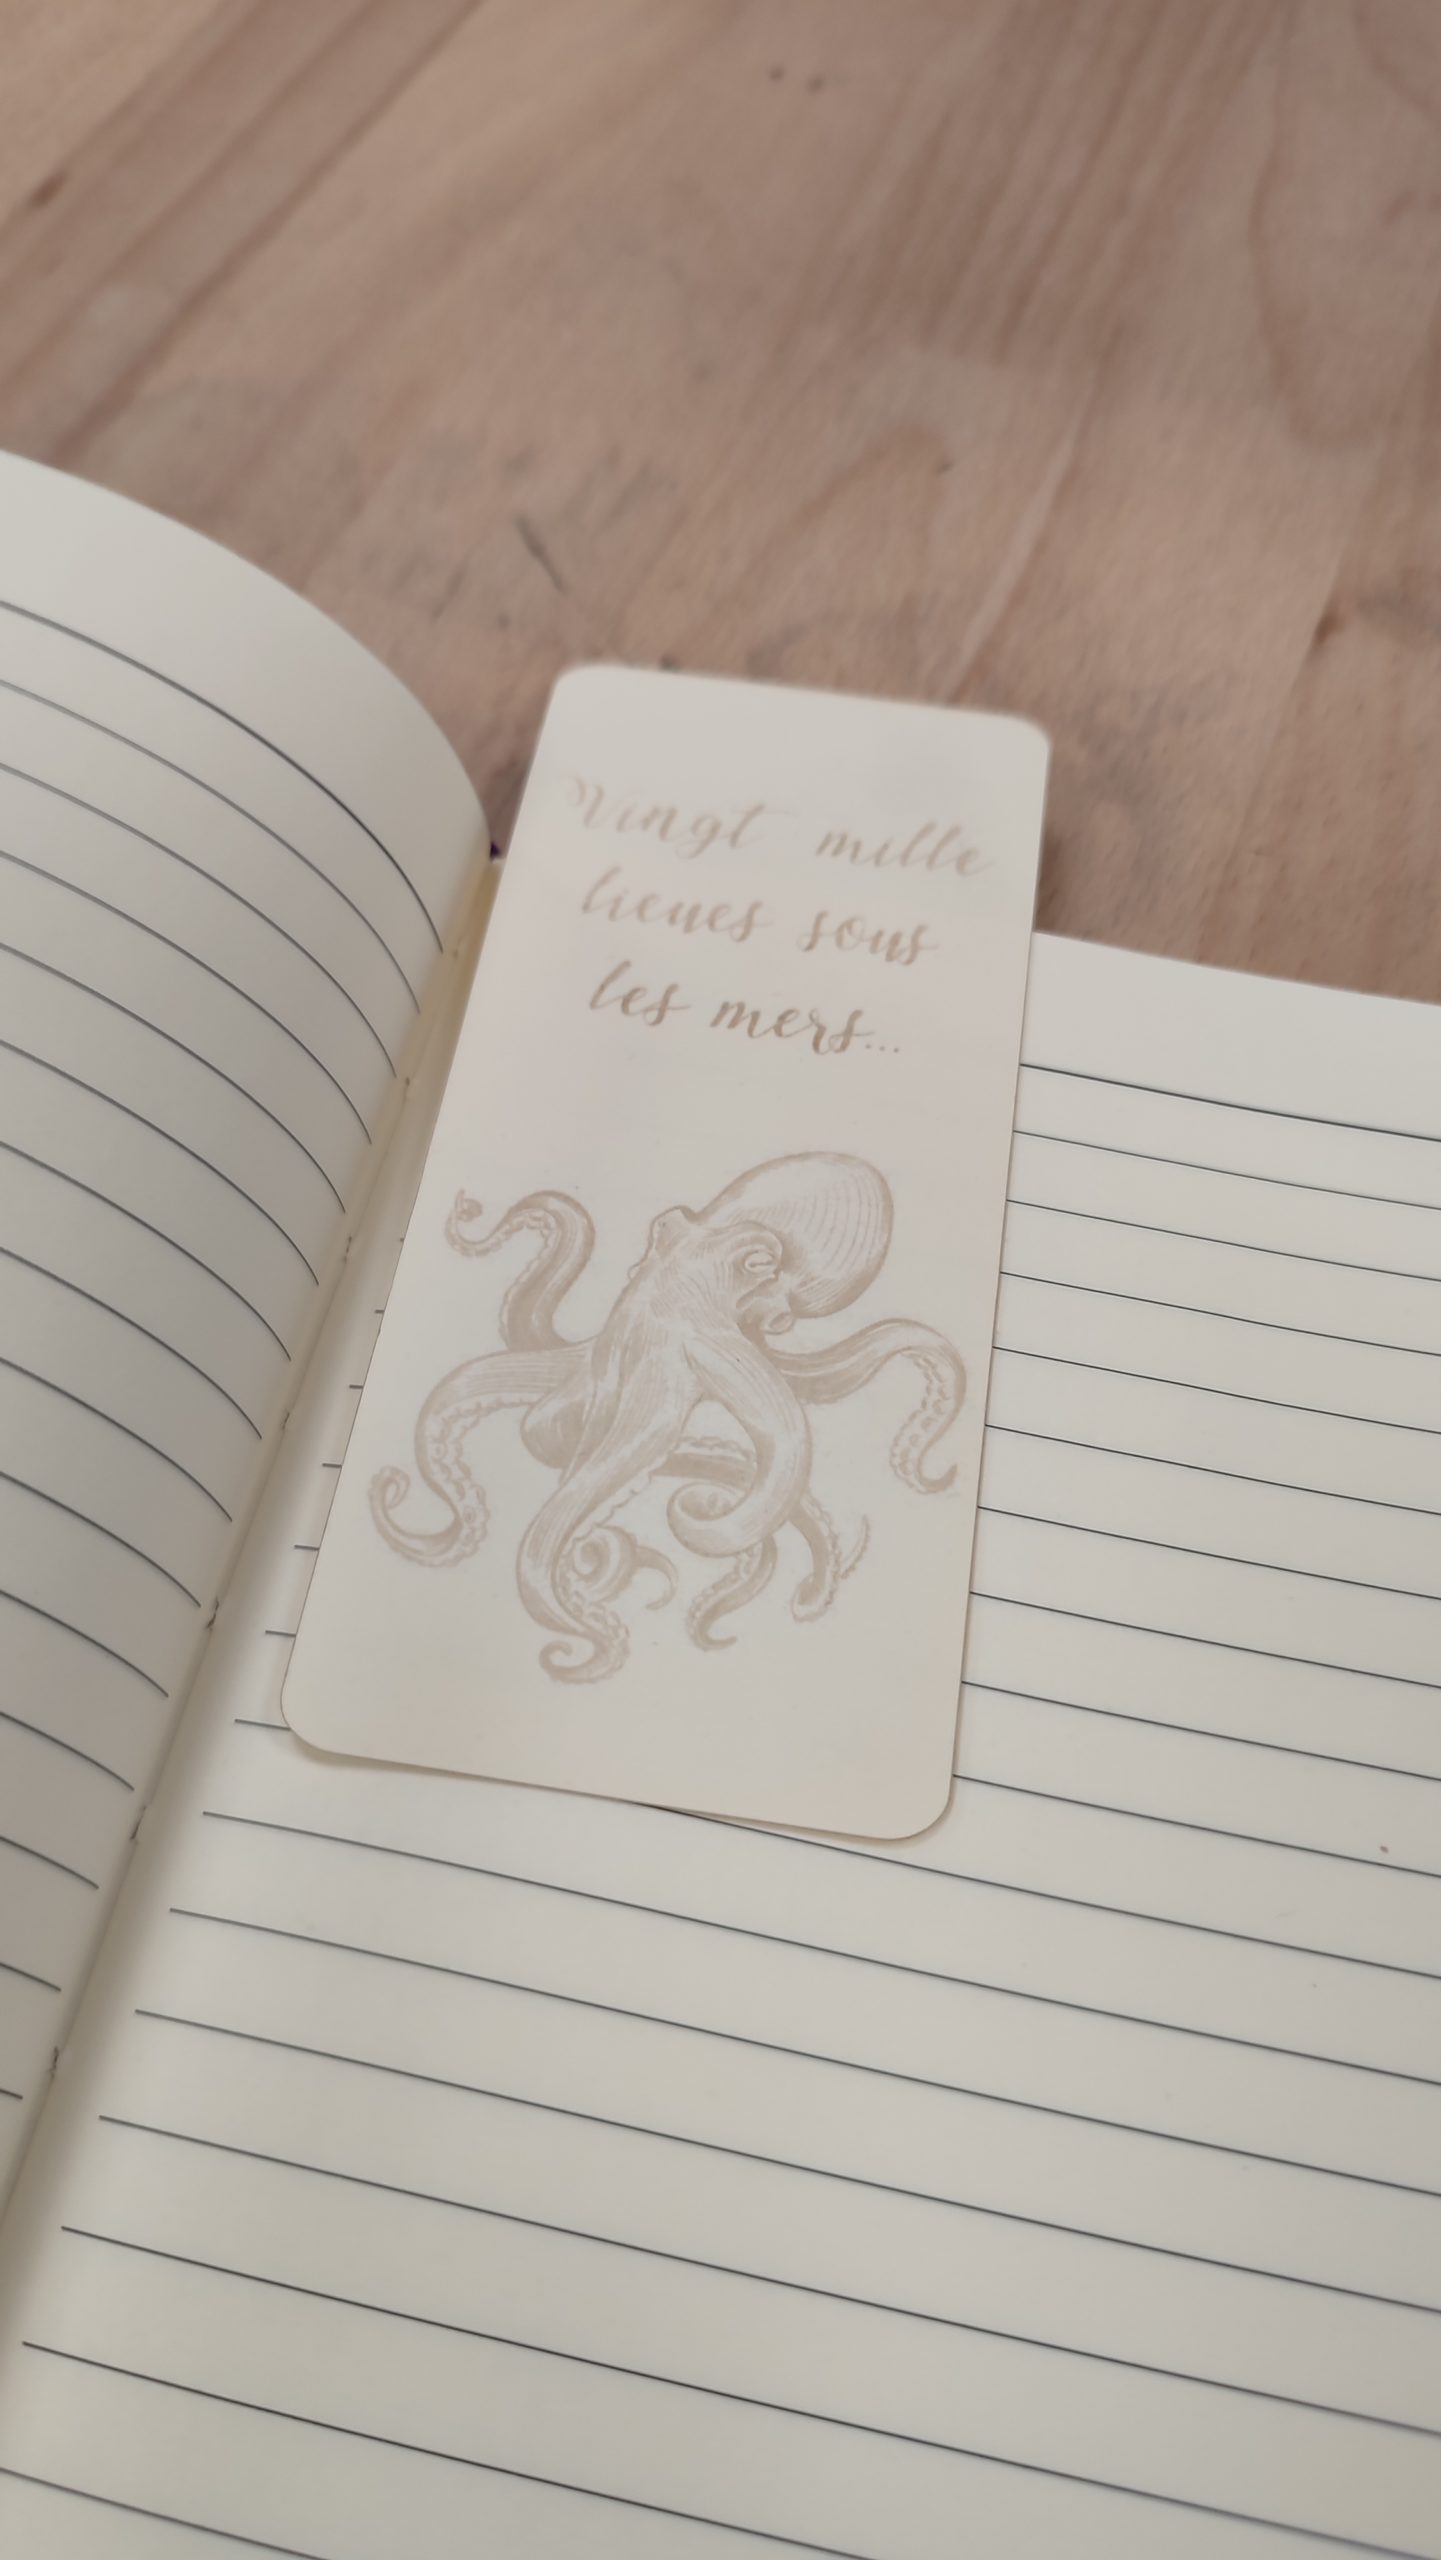 Vingt mille
lieues sous
les mers...